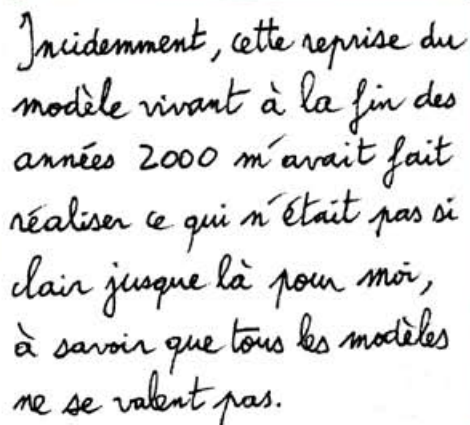 Incidemment, cette reprise du
modèle vivant à la fin des
années 2000 m'avait fait
réaliser ce qui n'était pas si
clair jusque là pour moi,
à savoir que tous les modèles
ne se valent pas.